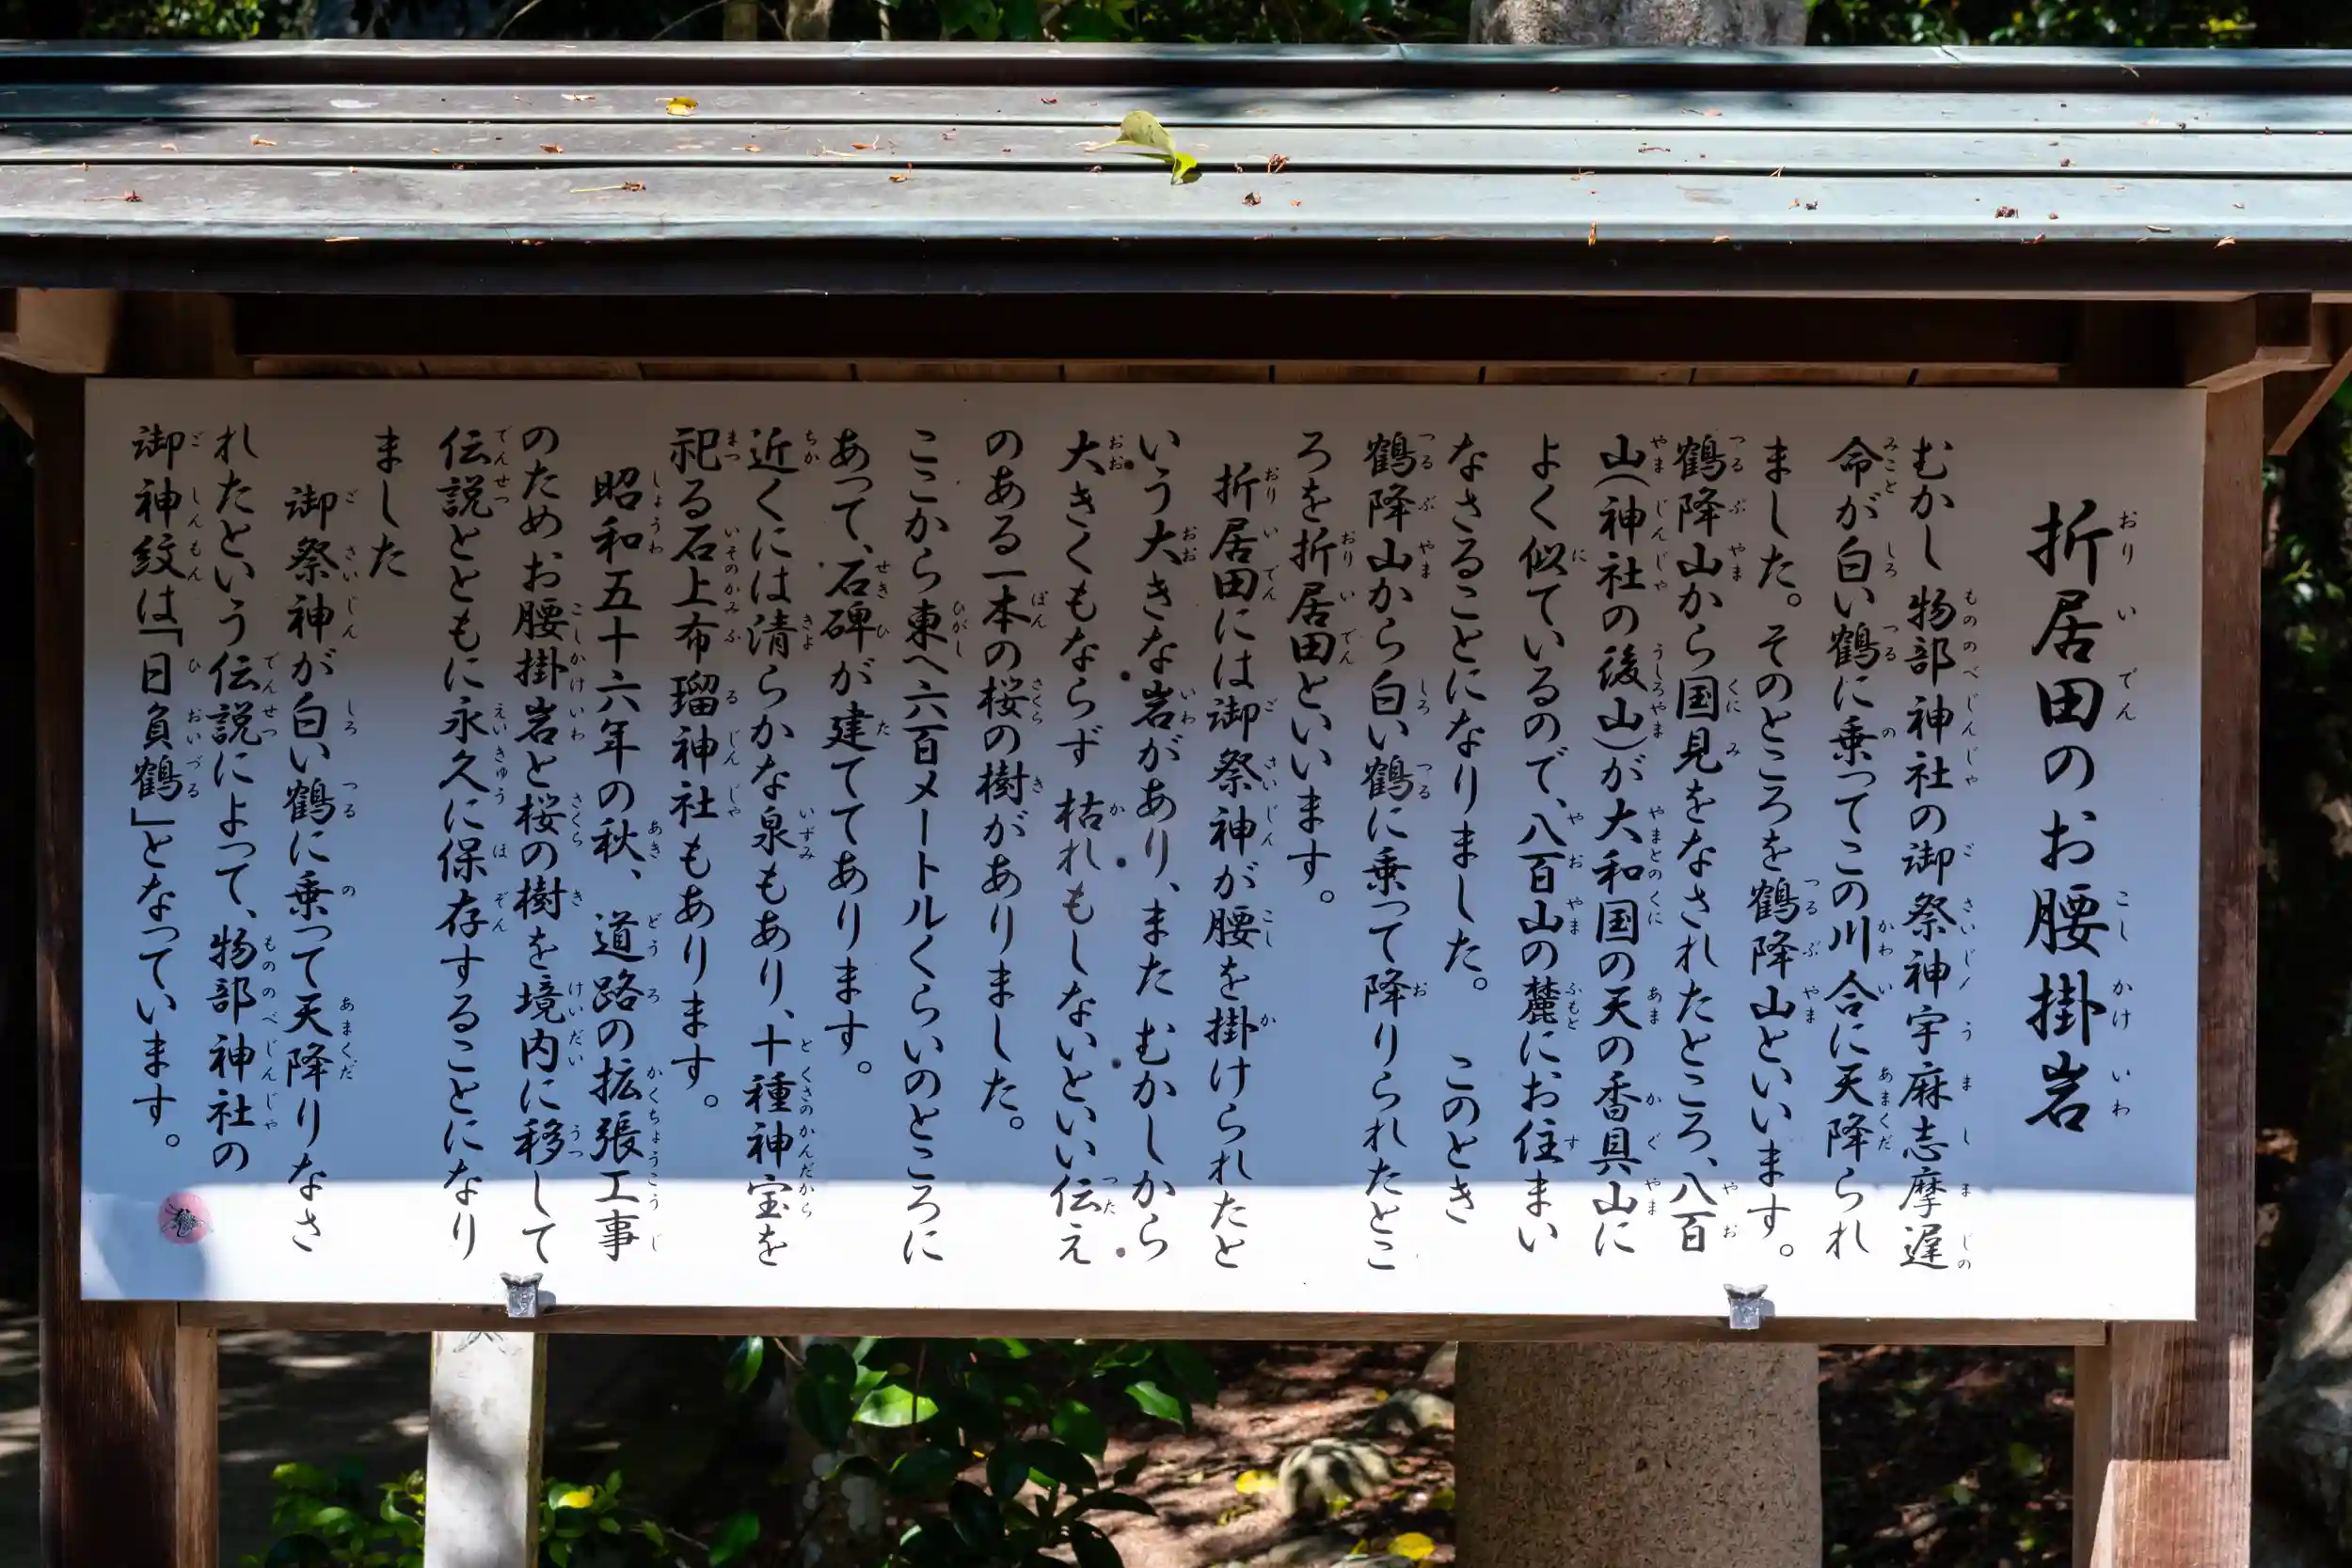 折居田のお腰掛岩
むかし物部神社の御祭神宇麻志摩遅
命が白い鶴に乗ってこの川合に天降られ
ました。そのところを鶴降山といいます。
鶴降山から国見をなされたところ、八百
山(神社の後山)が大和国の天の香具山に
よく似ているので、八百山の麓にお住まい
なさることになりました。 このとき
鶴降山から白い鶴に乗って降りられたとこ
ろを折居田といいます。
折居田には御祭神が腰を掛けられたと
いう大きな岩があり、また むかしから
大きくもならず 枯れもしないといい伝え
のある一本の桜の樹がありました。
ここから東へ六百メートルくらいのところに
あって、石碑が建ててあります。
近くには清らかな泉もあり、十種神宝を
祀る石上布瑠神社もあります。
昭和五十六年の秋、道路の拡張工事
のためお腰掛岩と桜の樹を境内に移して
伝説とともに永久に保存することになり
ました
御祭神が白い鶴に乗って天降りなさ
れたという伝説によって、物部神社の
御神紋は「日負鶴」となっています。